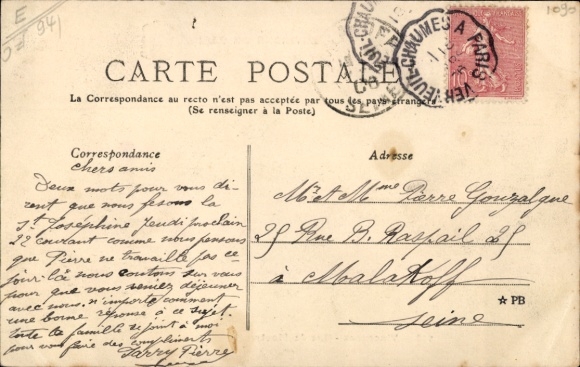 E
941
1090
VERNEUIL-CHAUMES A PARIS
CARTE POSTALE
La Correspondance au recto n'est pas acceptée par tous les pays étrangers
(Se renseigner à la Poste)
Correspondance
Adresse
chers amis
Deux mots pour vous di-
rent que nous fesons la
St Joséphine Jeudi prochain
22 courant comme nous pensons
que Pierre ne travaille pas ce
jour-là nous contons sur vous
pour que vous veniez déjeuner
avec nous. n'importe comment
une bonne réponse à ce sujet.
toute la famille se joint à moi
pour vous faire des compliments
Parry Pierre
Mr et Mme Pierre Gouzalgue
25 Rue B. Raspail 25
à Malakoff
Seine
★ PB